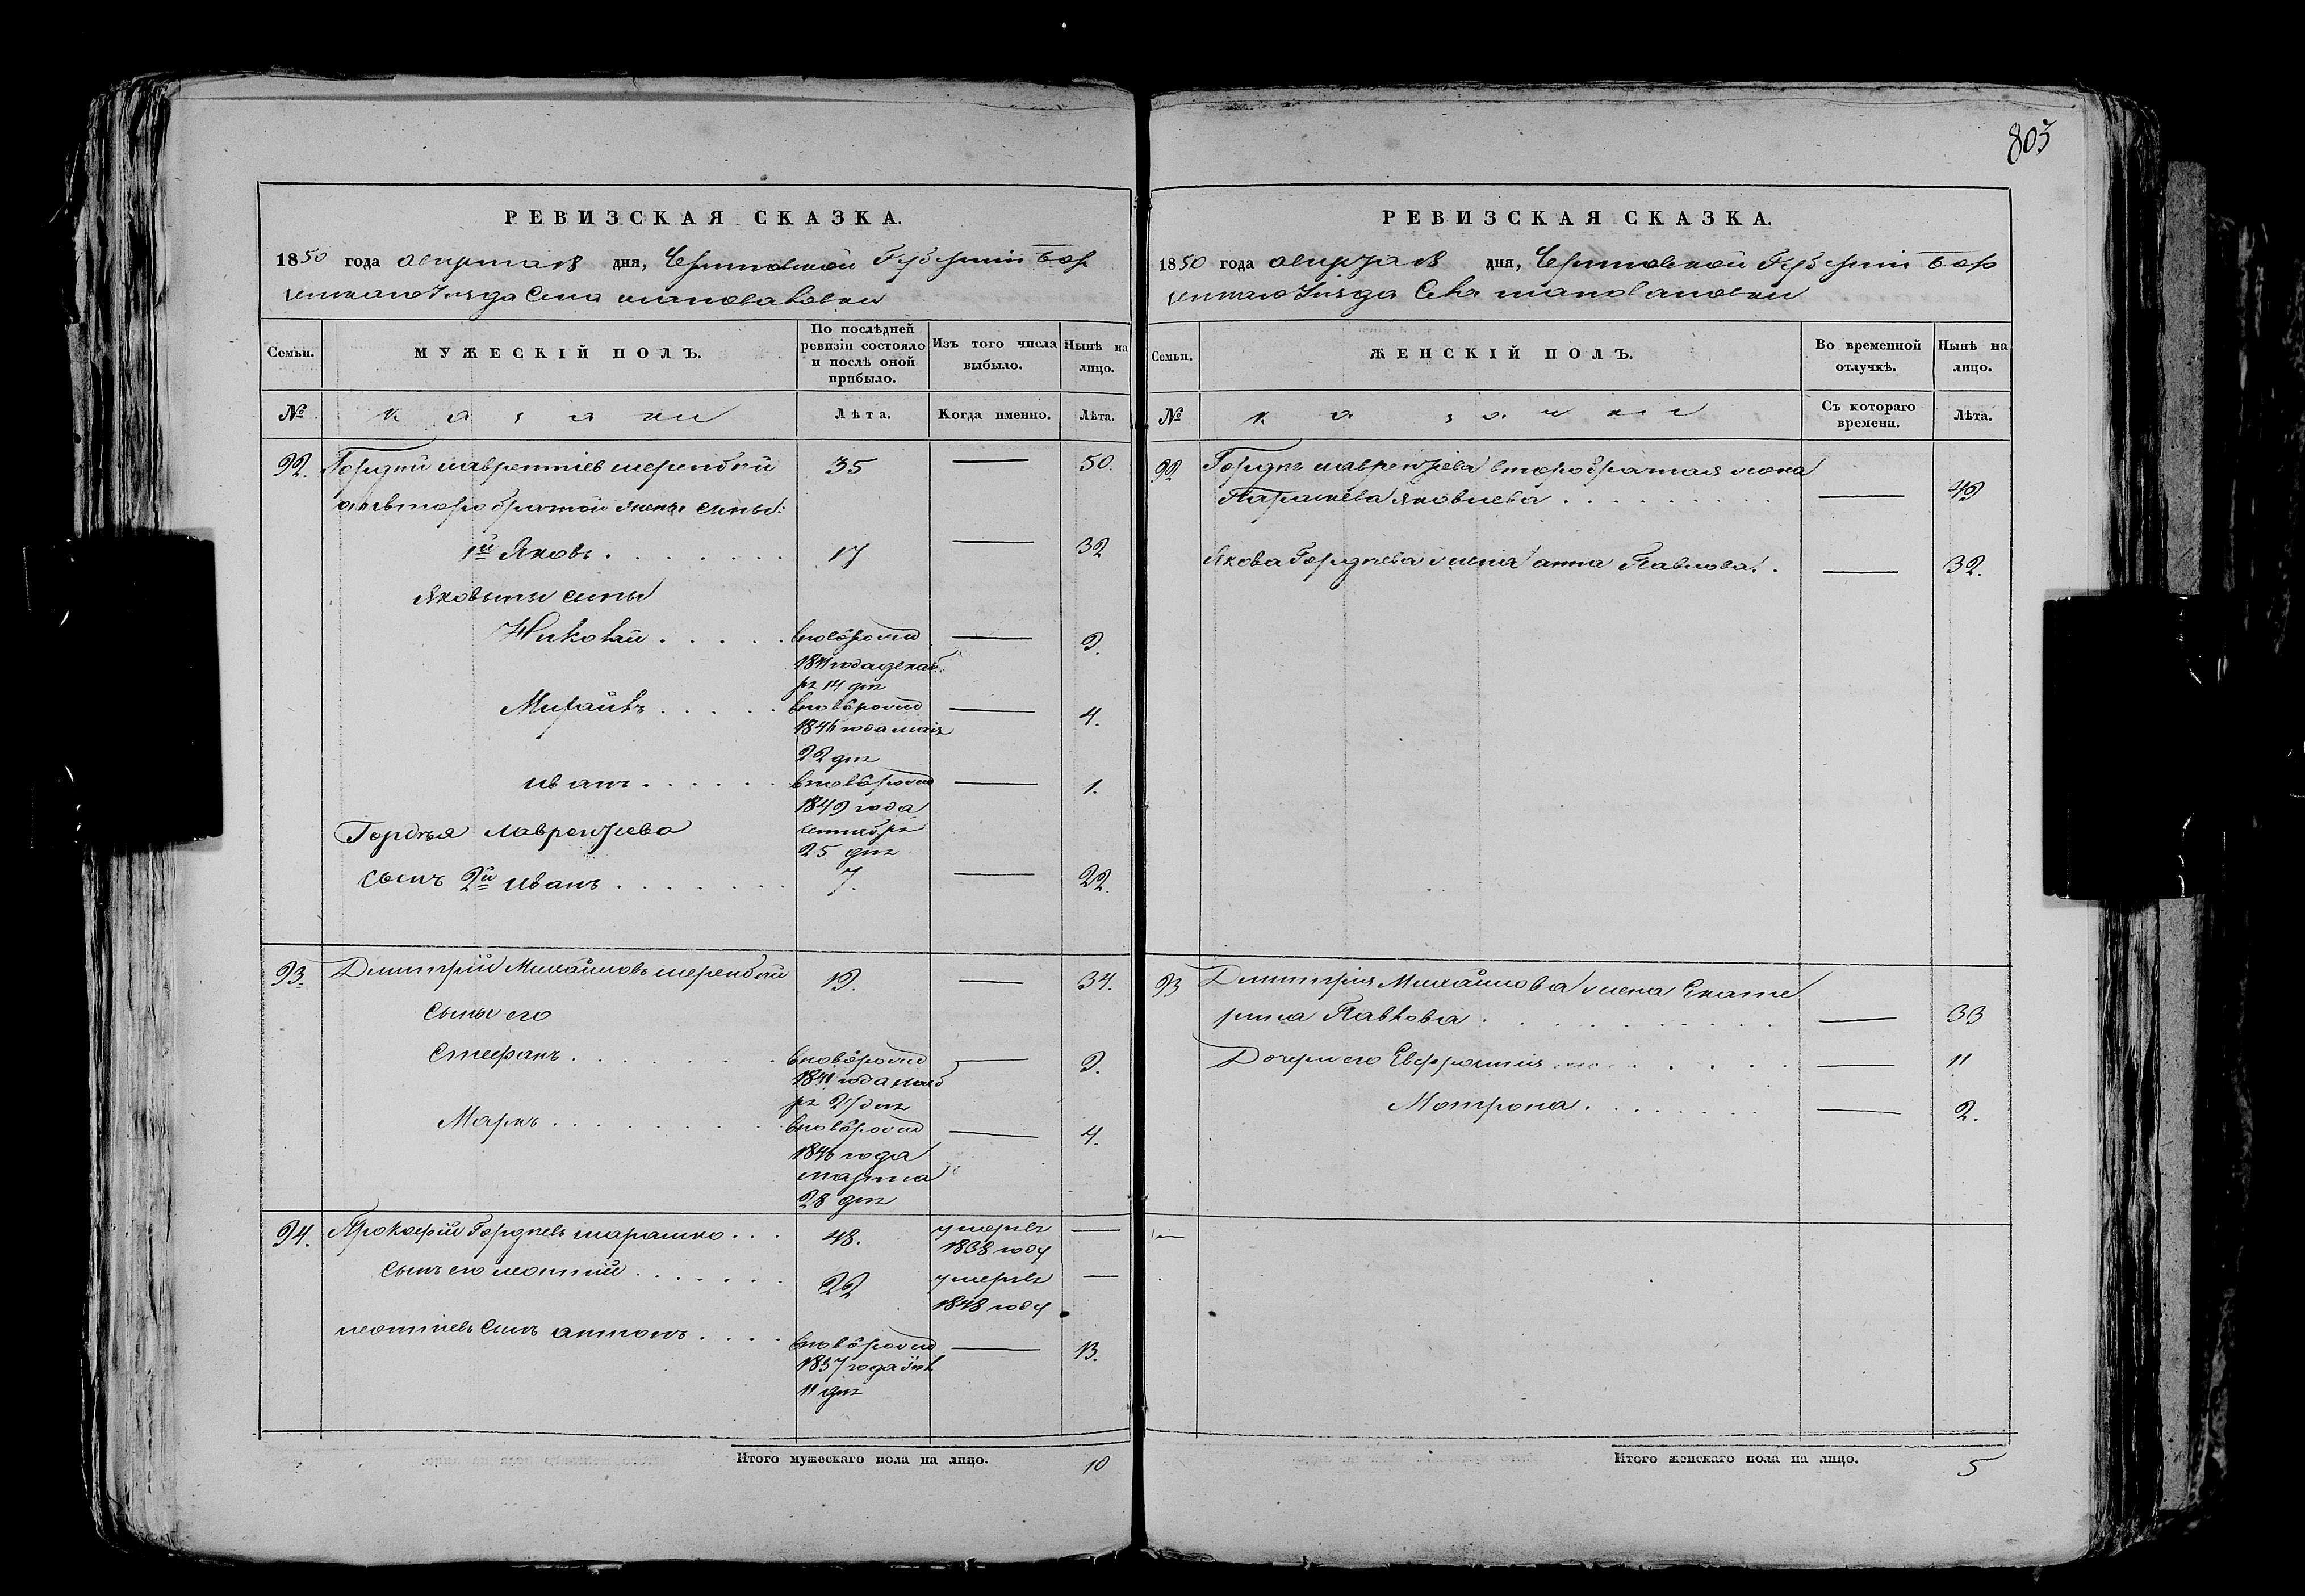 803
РЕВИЗСКАЯ СКАЗКА.
1850 года августа 18 дня, Черниговской Губерніи Бор
зенскаго Уезда Села
Семьи.
МУЖЕСКІЙ ПОЛЪ.
По послѣдней ревизіи состояло и послѣ оной прибыло.
Изъ того числа выбыло.
Нынѣ на лицо.
№
казаки
Лѣта.
Когда именно.
Лѣта.
92. Гордѣй Лаврентіев 35 — 50.
второбрачной жены сыны:
1й Яковъ 17 — 32
Яковыны сыны
Николай вновърожд — 9.
1841 года декаб
ря 14 дня
Михаилъ вновърожд — 4.
1846 года мая
22 дня
иванъ вновърожд — 1.
1849 года
сентября
25 дня
Гордѣя Лаврентіева
сынъ 2й иванъ 7. — 22.
93. Димитрій Михаиловъ 19. — 34.
Сыны его
Стефанъ вновърожд — 9.
1841 года нояб
ря 27 дня
Маркъ вновърожд — 4.
1846 года
марта
28 дня
94. Прокофій Гордѣевъ 48. умерлъ —
1838 году
сынъ его леонтій 22 умерлъ —
1848 году
леонтіевъ сынъ антонъ вновърожд — 13.
1837 года
11 дня
Итого мужескаго пола на лицо. 10
РЕВИЗСКАЯ СКАЗКА.
1850 года августа 18 дня, Черниговской Губерніи Бор
зенскаго Уезда Села
Семьи.
ЖЕНСКІЙ ПОЛЪ.
Во временной отлучкѣ.
Нынѣ на лицо.
№
казачки
Съ котораго времени.
Лѣта.
92 Гордѣя лаврентіева второбрачная жена
Параскева Яковлева — 49
Якова Гордѣева жена анна Павлова — 32.
93 Димитрія Михаилова жена Екате
рина Павлова — 33
Дочери его Евфросинія — 11
Мотрона — 2.
Итого женскаго пола на лицо. 5